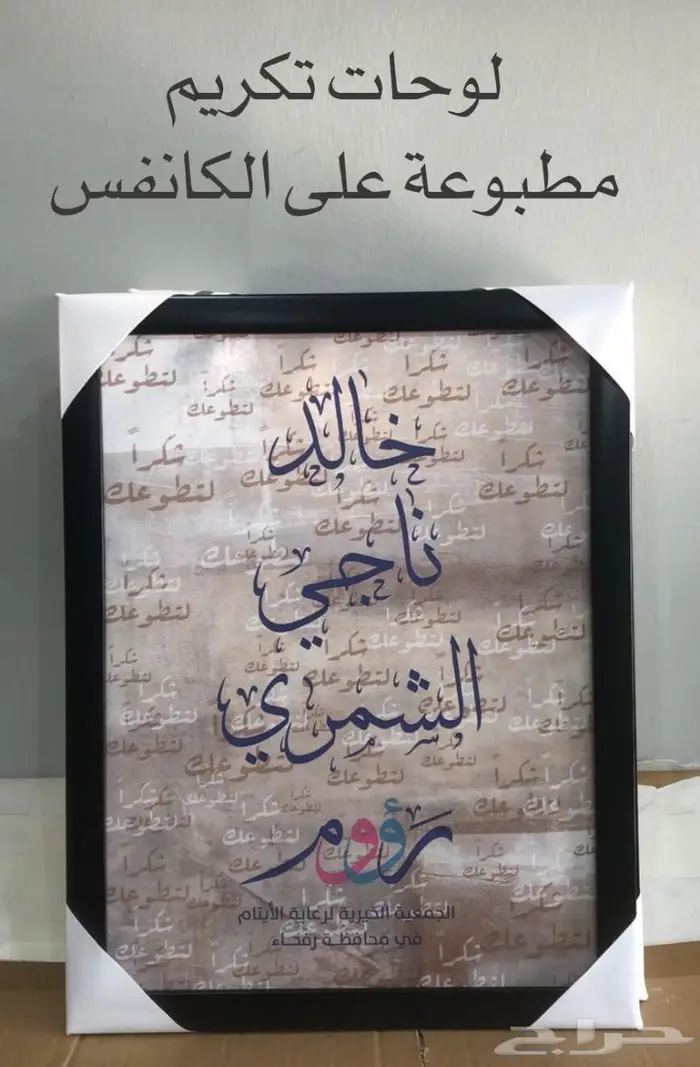 لوحات تكريم
مطبوعة على الكانفس
شكراً لتطوعك
خالد
ناجي
الشمري
رؤوم
الجمعية الخيرية لرعاية الأيتام
في محافظة رفحاء
حراج